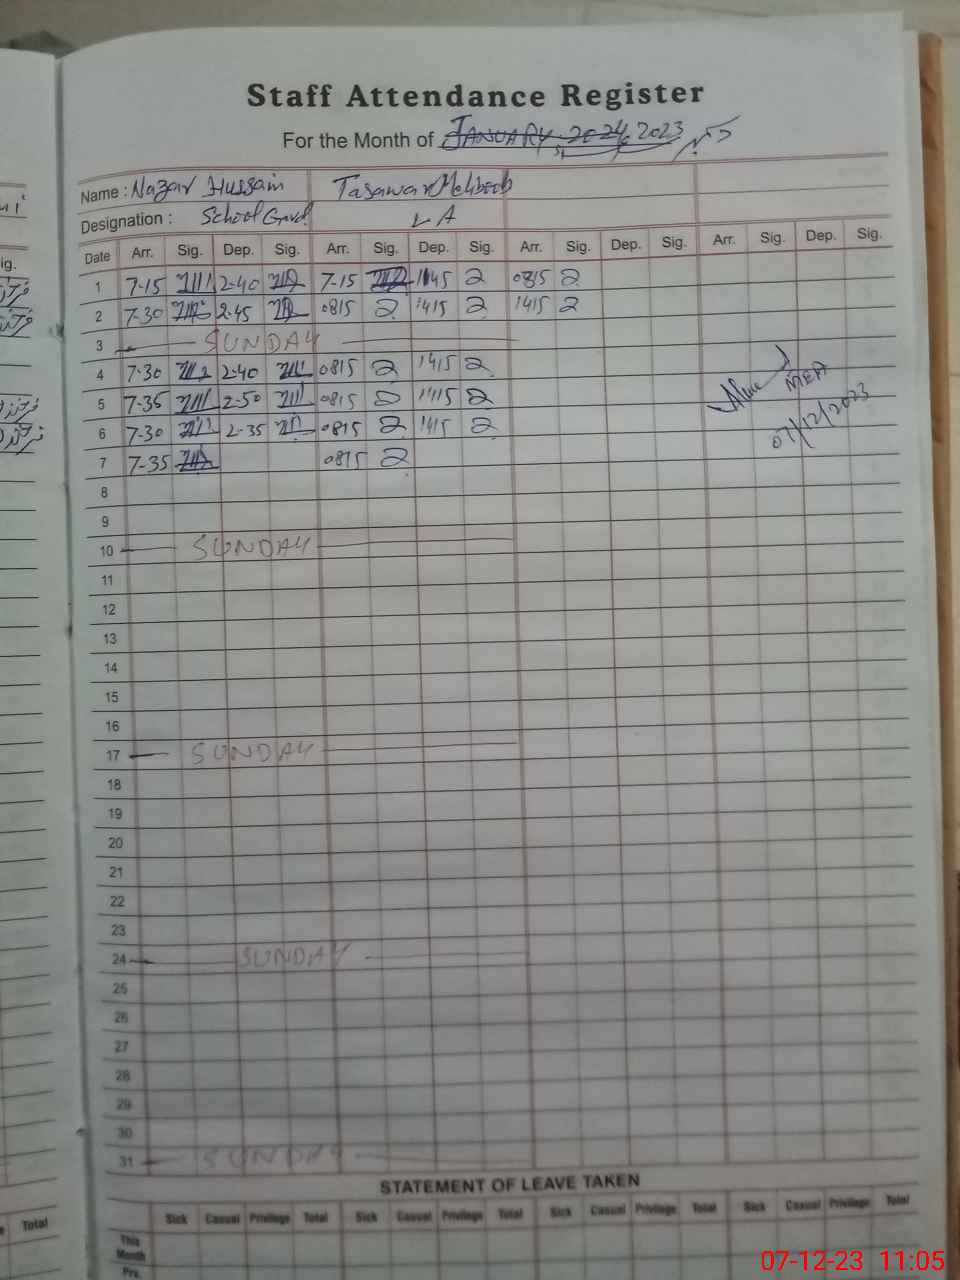 Staff Attendance Register
For the Month of JANUARY, 2024, 2023
Name : Nazar Hussain Tasawar Mehboob
Designation : School Guard L A
Date Arr. Sig. Dep. Sig. Arr. Sig. Dep. Sig. Arr. Sig. Dep. Sig. Arr. Sig. Dep. Sig.
1 7-15 2-40 7-15 1445 0815
2 7-30 2-45 0815 1415 1415
3 SUNDAY
4 7-30 2-40 0815 1415
5 7-35 2-50 0815 1415
6 7-30 2-35 0815 1415
MEA
07/12/2023
7 7-35 0815
8
9
10 SUNDAY
11
12
13
14
15
16
17 SUNDAY
18
19
20
21
22
23
24 SUNDAY
25
26
27
28
29
30
31 SUNDAY
STATEMENT OF LEAVE TAKEN
Total Sick Casual Privilege Total Sick Casual Privilege Total Sick Casual Privilege Total Sick Casual Privilege Total
This
Month
Prv.
07-12-23 11:05